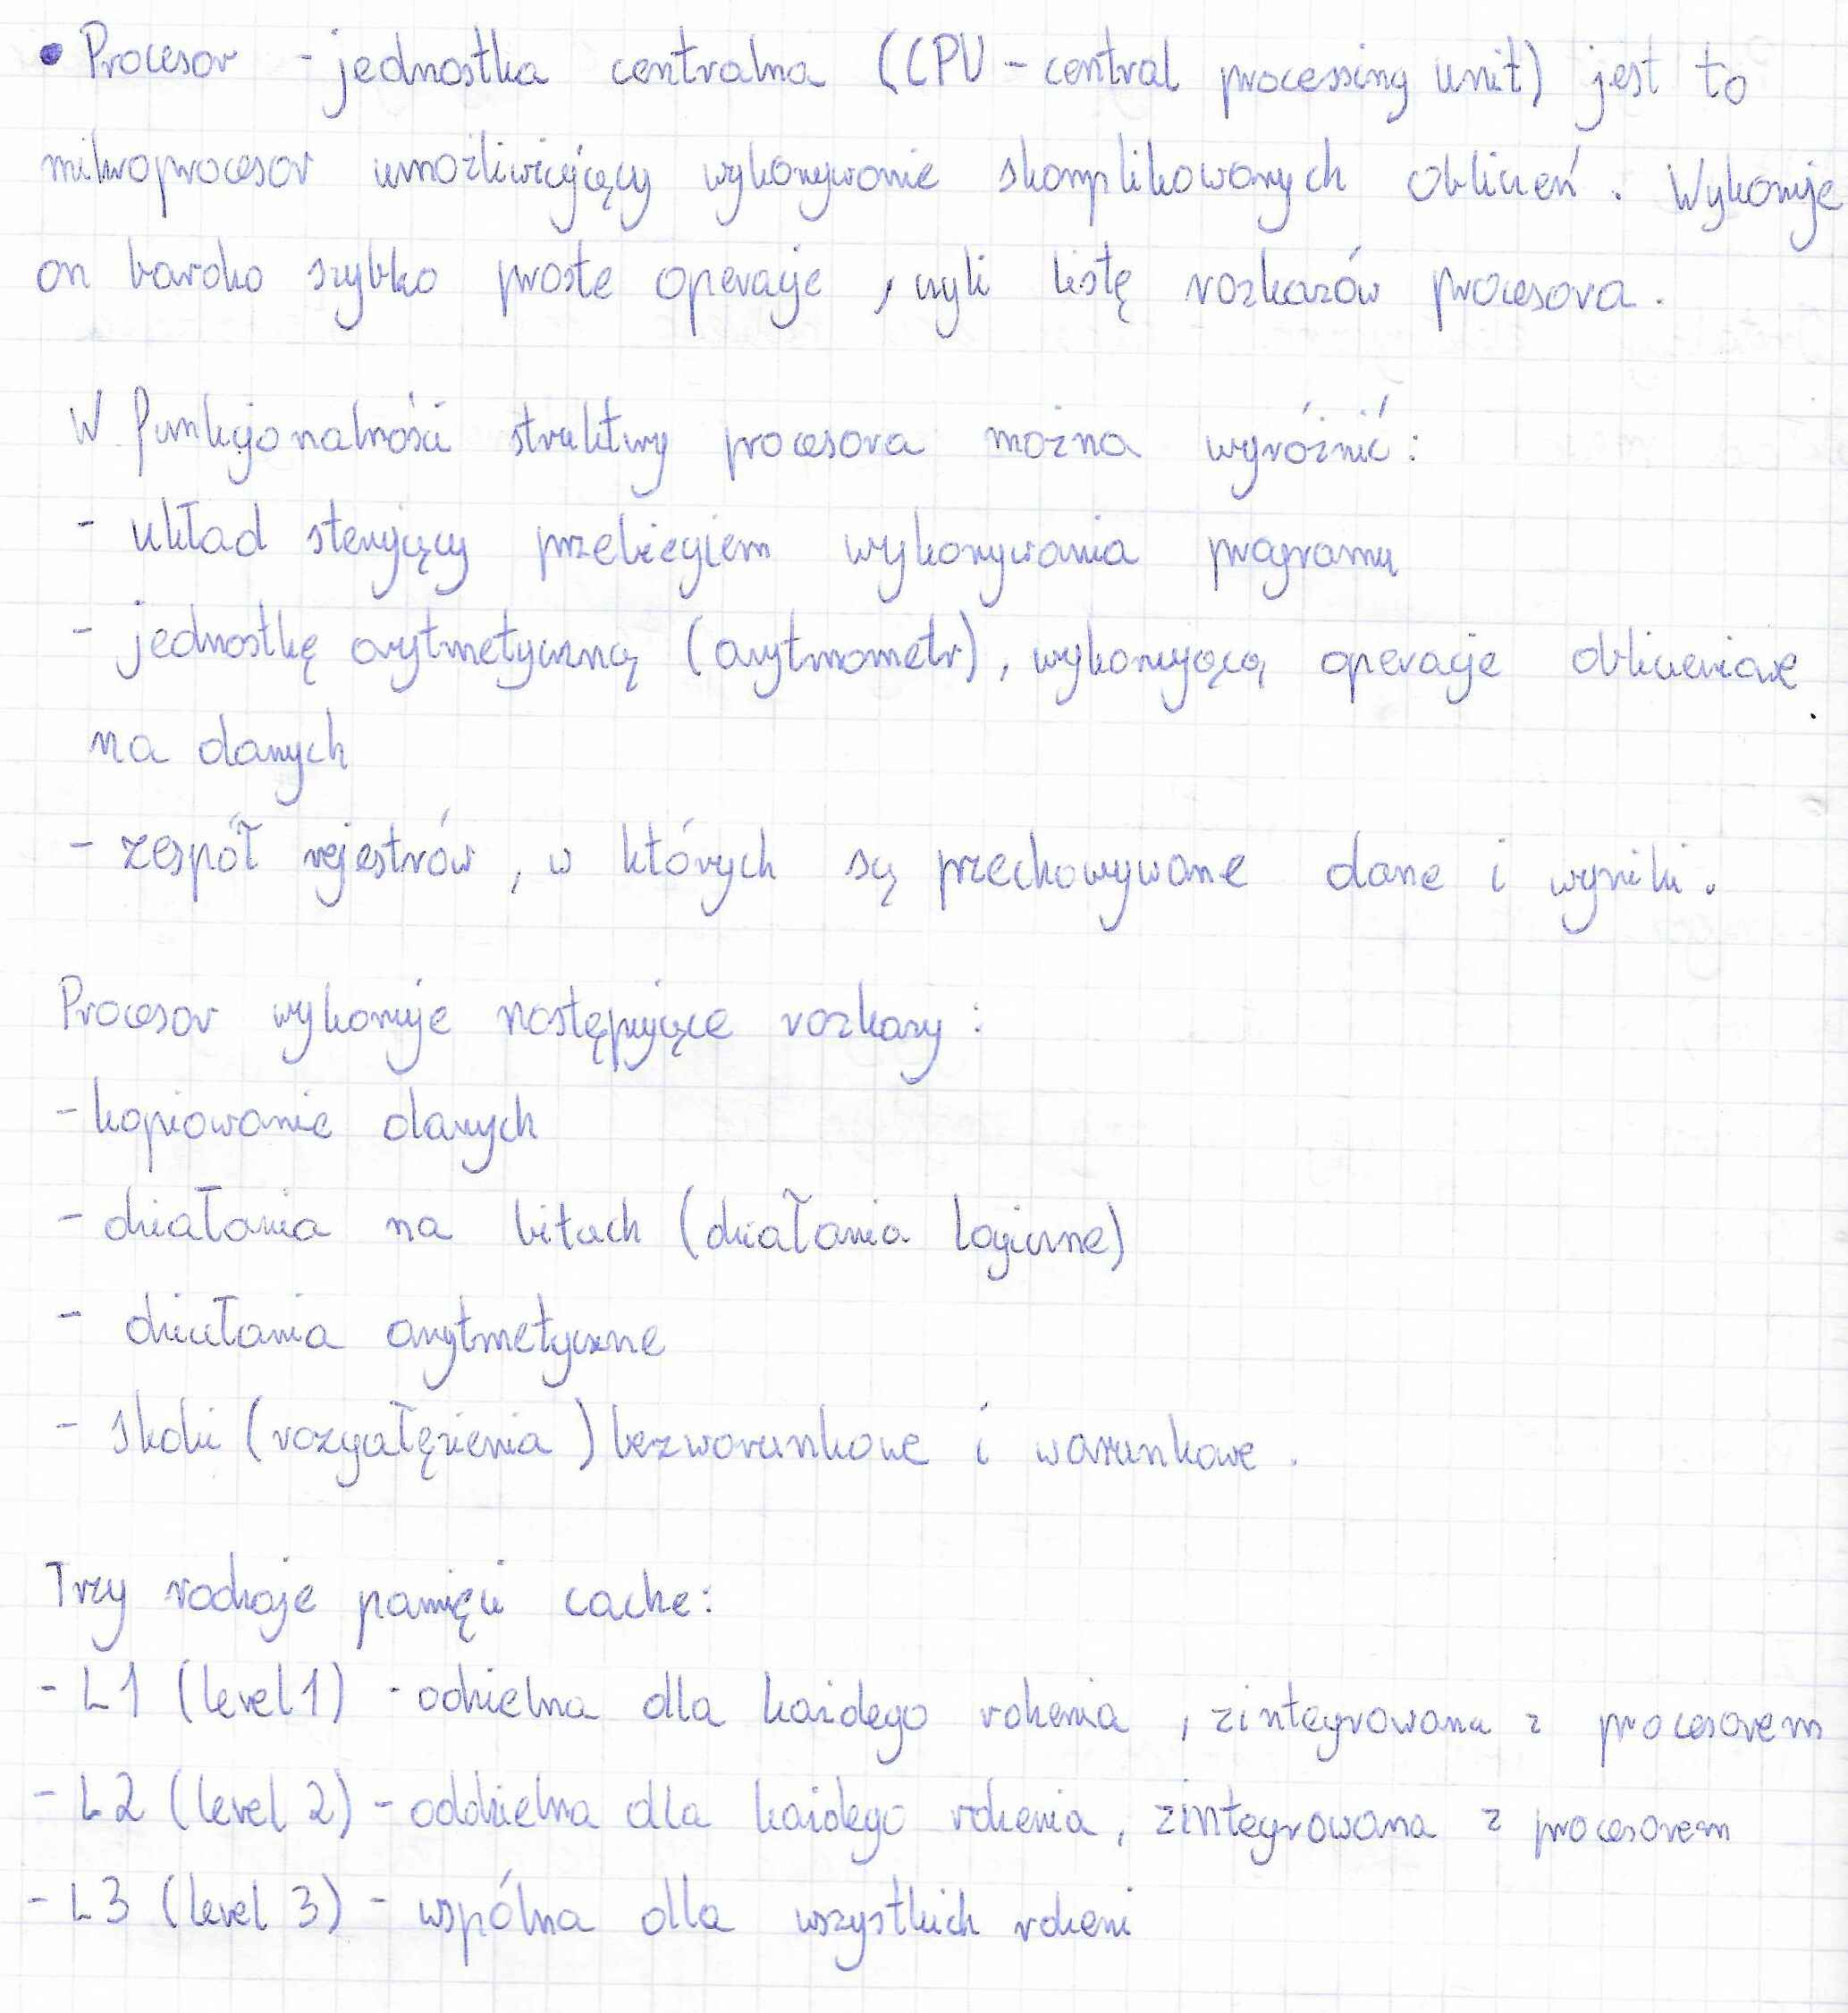 • Procesor - jednostka centralna (CPU - central processing unit) jest to
mikroprocesor umożliwiający wykonywanie skomplikowanych obliczeń. Wykonuje
on bardzo szybko proste operacje, czyli listę rozkazów procesora.
W funkcjonalności struktury procesora można wyróżnić:
- układ sterujący przebiegiem wykonywania programu
- jednostkę arytmetyczną (arytmometr), wykonującą operacje obliczeniowe
na danych
- zespół rejestrów, w których są przechowywane dane i wyniki.
Procesor wykonuje następujące rozkazy:
- kopiowanie danych
- działania na bitach (działania logiczne)
- działania arytmetyczne
- skoki (rozgałęzienia) bezwarunkowe i warunkowe.
Trzy rodzaje pamięci cache:
- L1 (level 1) - odzielna dla każdego rdzenia, zintegrowana z procesorem
- L2 (level 2) - oddzielna dla każdego rdzenia, zintegrowana z procesorem
- L3 (level 3) - wspólna dla wszystkich rdzeni